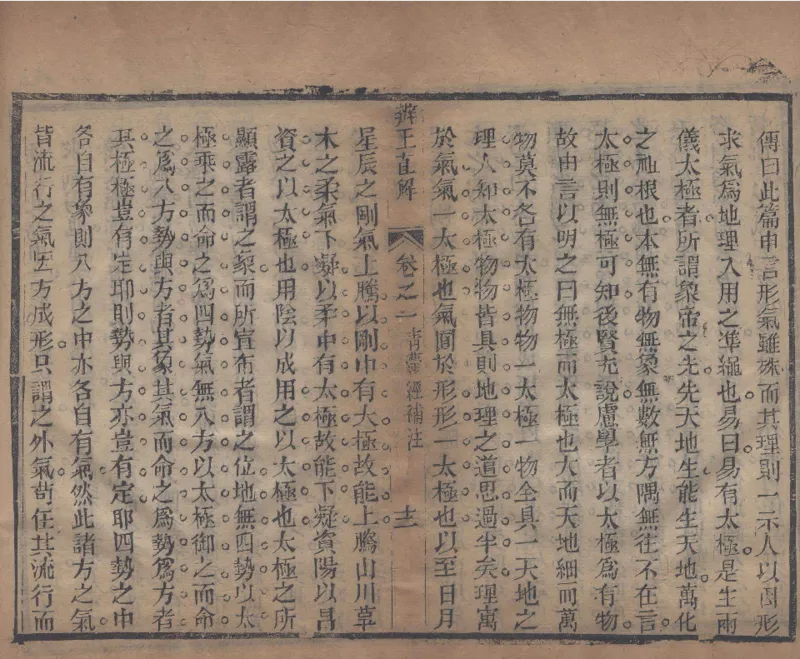 傳曰此篇申言形氣雖殊而其理則一示人以因形
求氣爲地理入用之準繩也易曰易有太極是生兩
儀太極者所謂象帝之先先天地生能生天地萬化
之祉根也本無有物無象無數無方隅無往不在言
太極則無極可知後賢立說慮學者以太極爲有物
故申言以明之曰無極而太極也大而天地細而萬
物莫不各有太極物物一太極一物全具一天地之
理人知太極物物皆具則地理之道思過半矣理寓
於氣氣一太極也氣囿於形形一太極也以至日月
辨正直解
卷之一 青囊經補注 十三
星辰之剛氣上騰以剛中有太極故能上騰山川草
木之柔氣下凝以柔中有太極故能下凝資陽以昌
資之以太極也用陰以成用之以太極也太極之所
顯露者謂之象而所宜布者謂之位地無四勢以太
極乘之而命之爲四勢氣無八方以太極御之而命
之爲八方勢與方者其象其氣而命之爲勢爲方者
其極極豈有定耶則勢與方亦豈有定耶四勢之中
各自有象則八方之中亦各自有氣然此諸方之氣
皆流行之氣因方成形只謂之外氣苟任其流行而